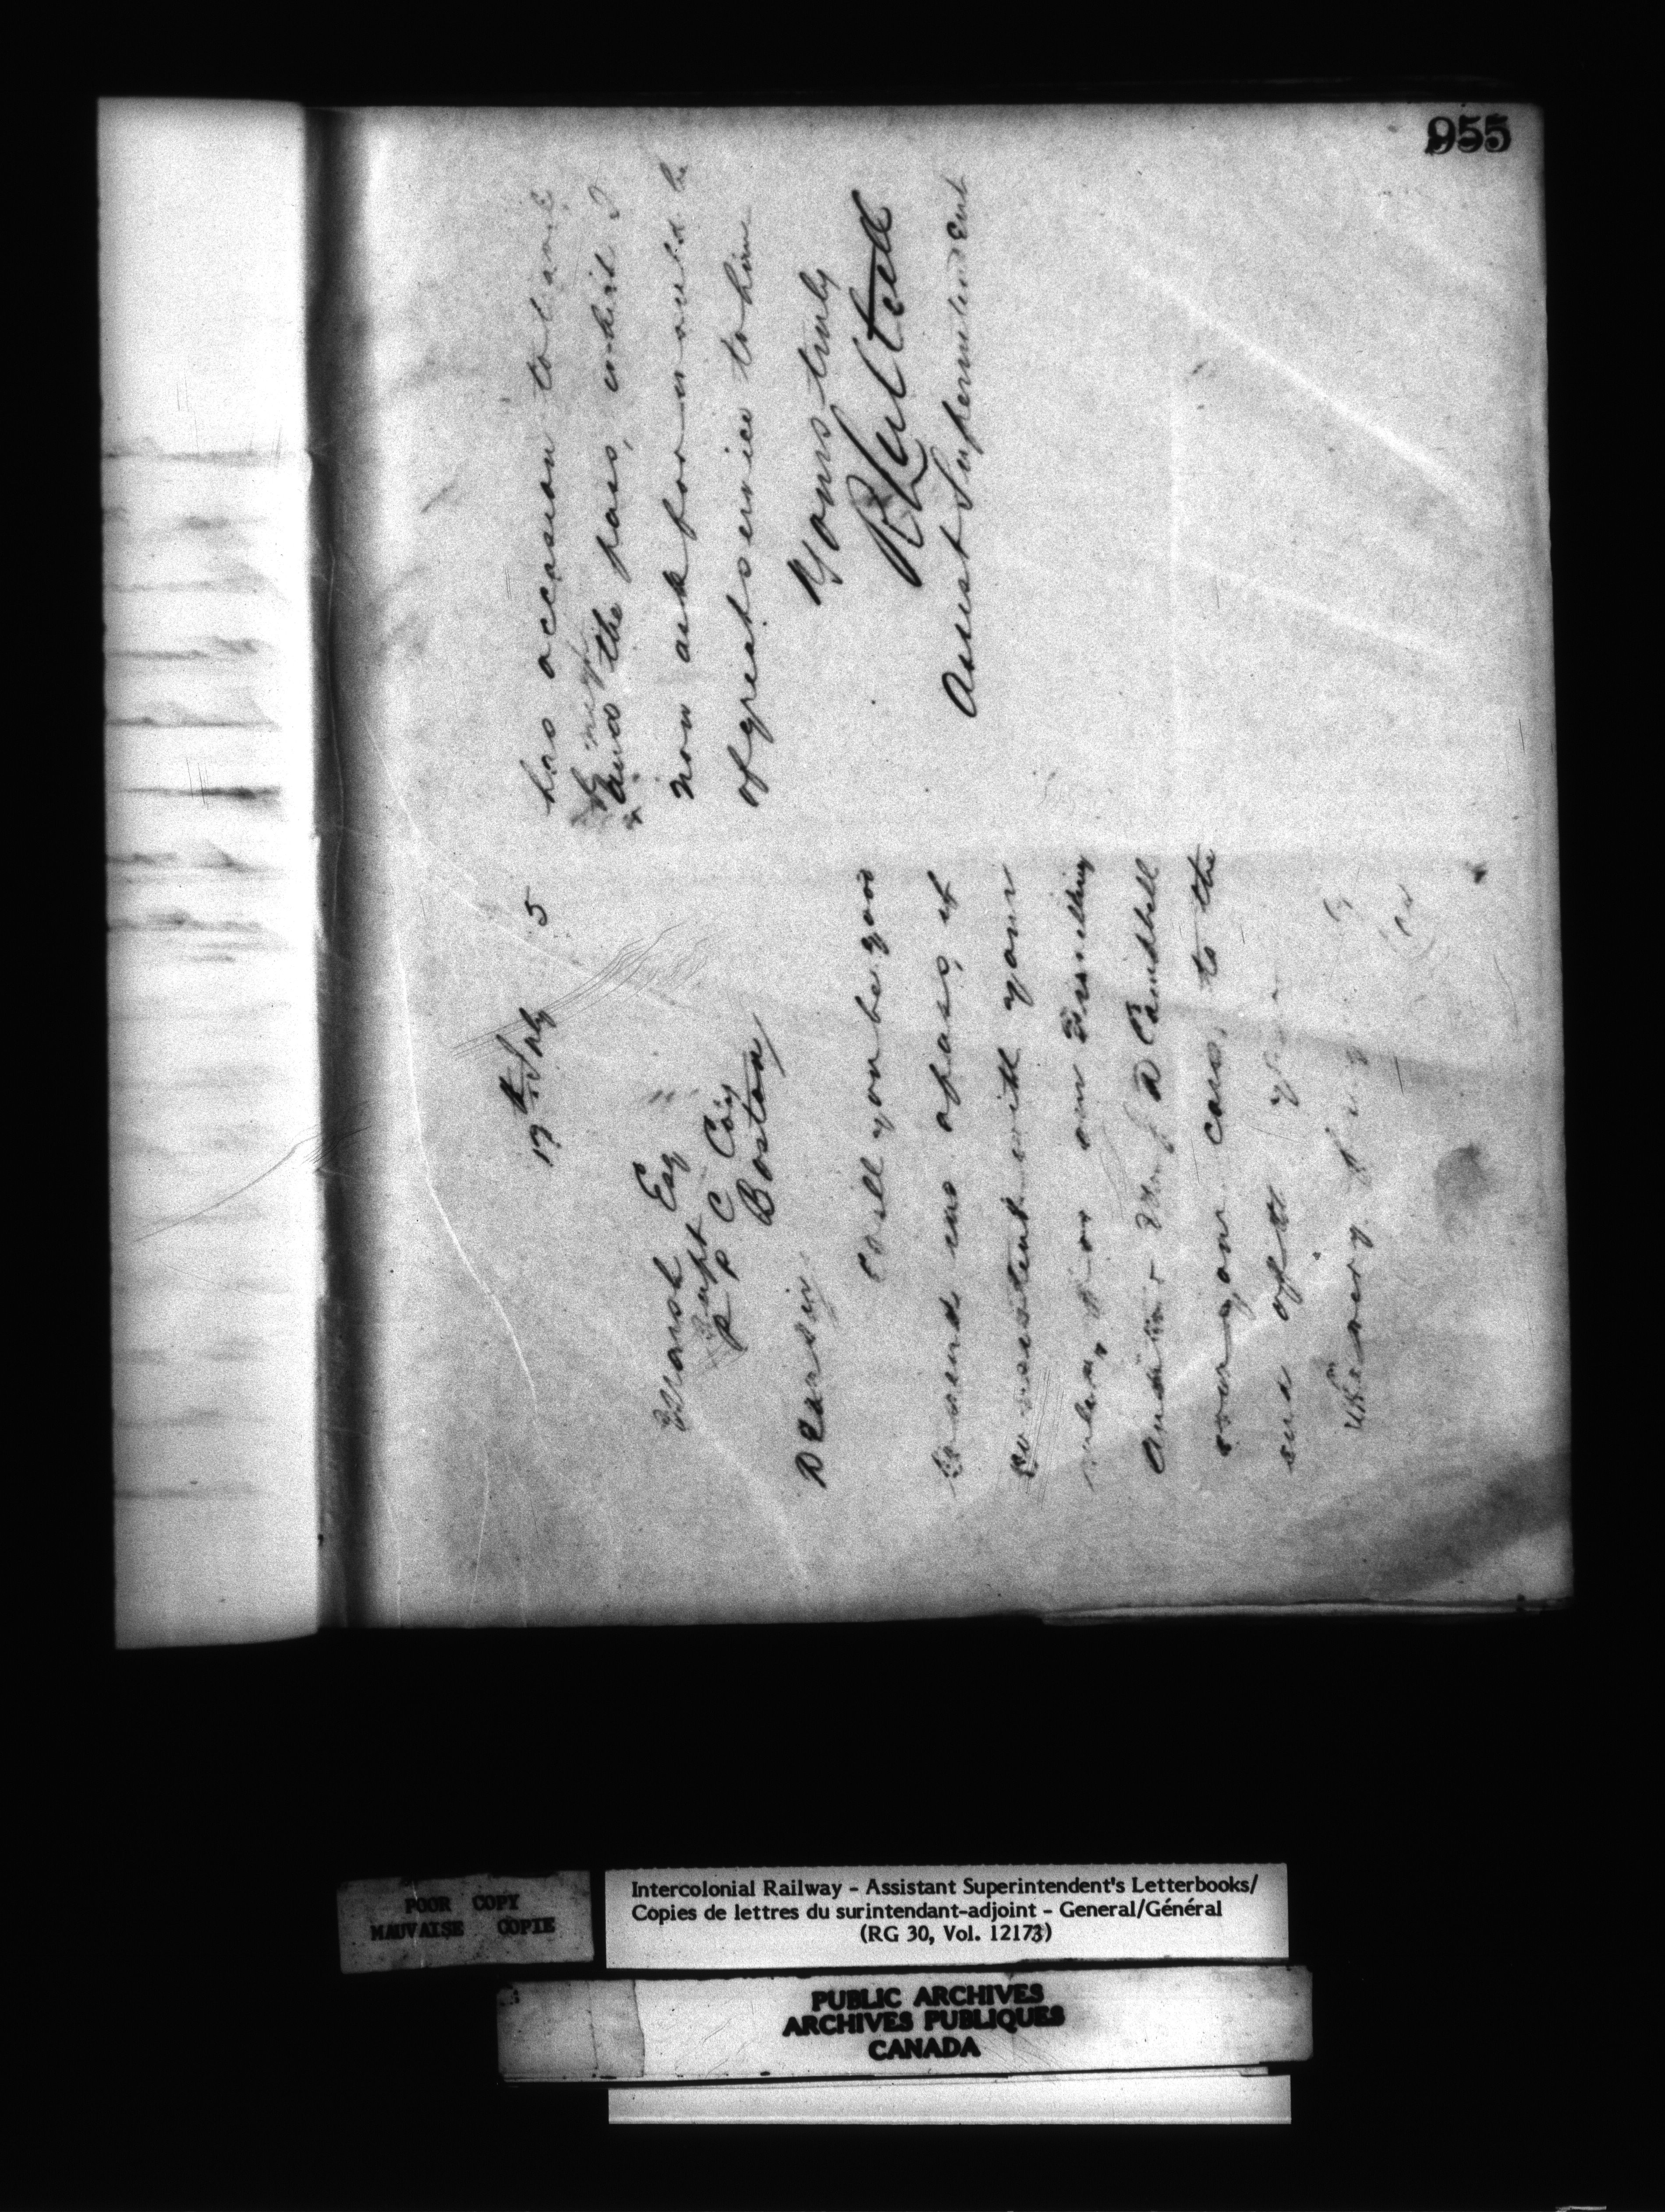 955
17th July 5
Marsh Esq
Supt
P P C Coy
Boston
Dear Sir
Will you be good
to send me a pass, if
consistent with your
rules, for our Travelling
Auditor D Campbell
over your cars, to the
end of the year
He very
has occasion to
and the pass, which I
now ask for would be
of great service to him
Yours truly
R Luttrell
Assist Superintendent
POOR COPY
MAUVAISE COPIE
Intercolonial Railway - Assistant Superintendent's Letterbooks/
Copies de lettres du surintendant-adjoint - General/Général
(RG 30, Vol. 12173)
PUBLIC ARCHIVES
ARCHIVES PUBLIQUES
CANADA